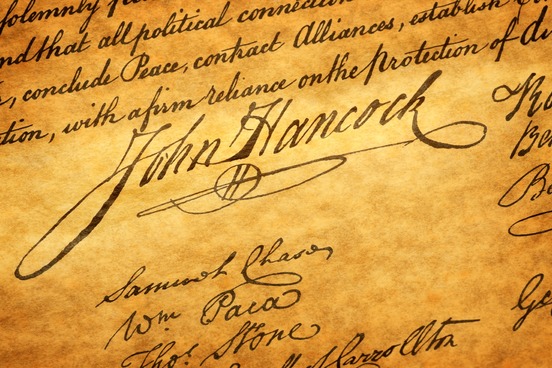 solemnly
nd that all political connection
, conclude Peace, contract Alliances, establish
tion, with a firm reliance on the Protection of di
John Hancock
Samuel Chase
Wm. Paca
Thos. Stone
Carrollton
Ro
Ben
Be
Ge